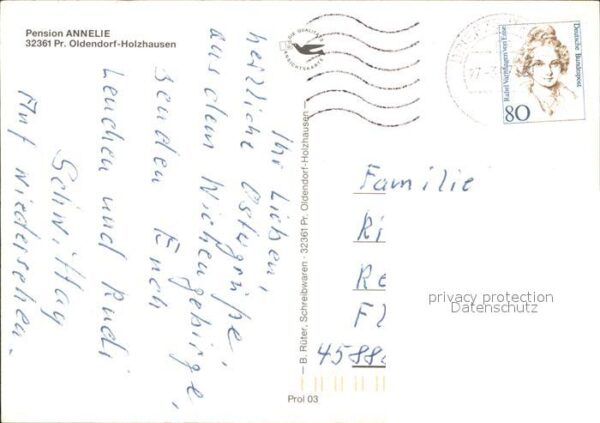 Pension ANNELIE
32361 Pr. Oldendorf-Holzhausen
Ihr Lieben,
herzliche Ostergrüße,
aus dem Wiehengebirge,
senden Euch
Lenchen und Rudi
Schwittay
Auf Wiedersehen.
DIE QUALITÄTS
ANSICHTSKARTE
B. Rüter, Schreibwaren · 32361 Pr. Oldendorf-Holzhausen
Prol 03
Rahel Varnhagen von Ense
Deutsche Bundespost
80
Familie
Ri
Re
Fl
4588
privacy protection
Datenschutz